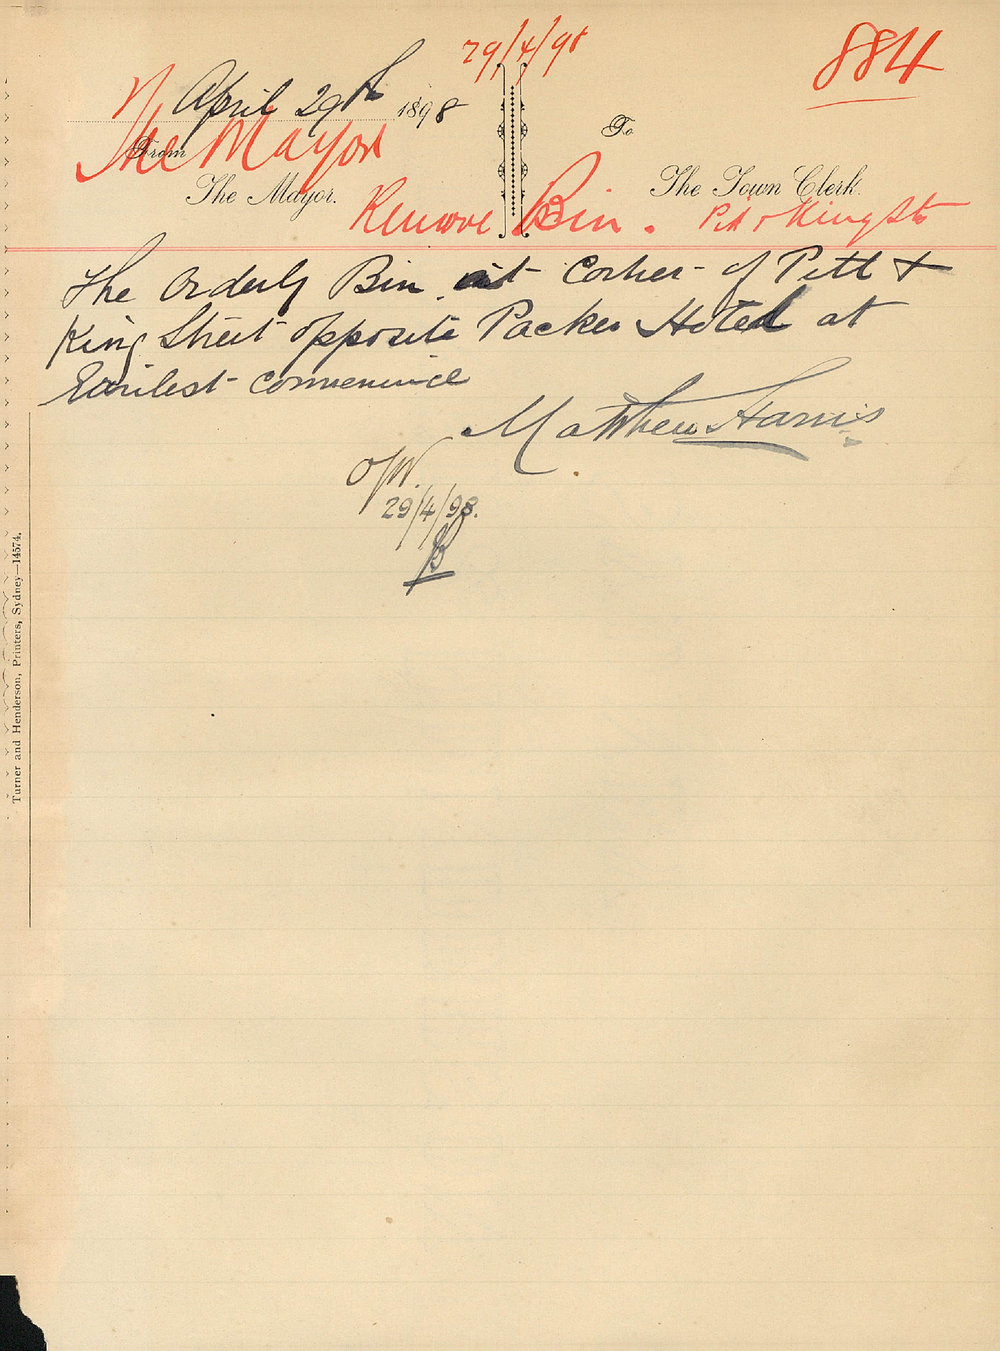 29/4/98
884
April 29th 1898
The Mayor
From
To
The Mayor.
The Town Clerk.
Remove Bin. Pitt & King Sts
The Orderly Bin at Corner of Pitt &
King Street opposite Packer Hotel at
Earilest convenience
Matthew Harris
O/W.
29/4/98.
Turner and Henderson, Printers, Sydney—14574.